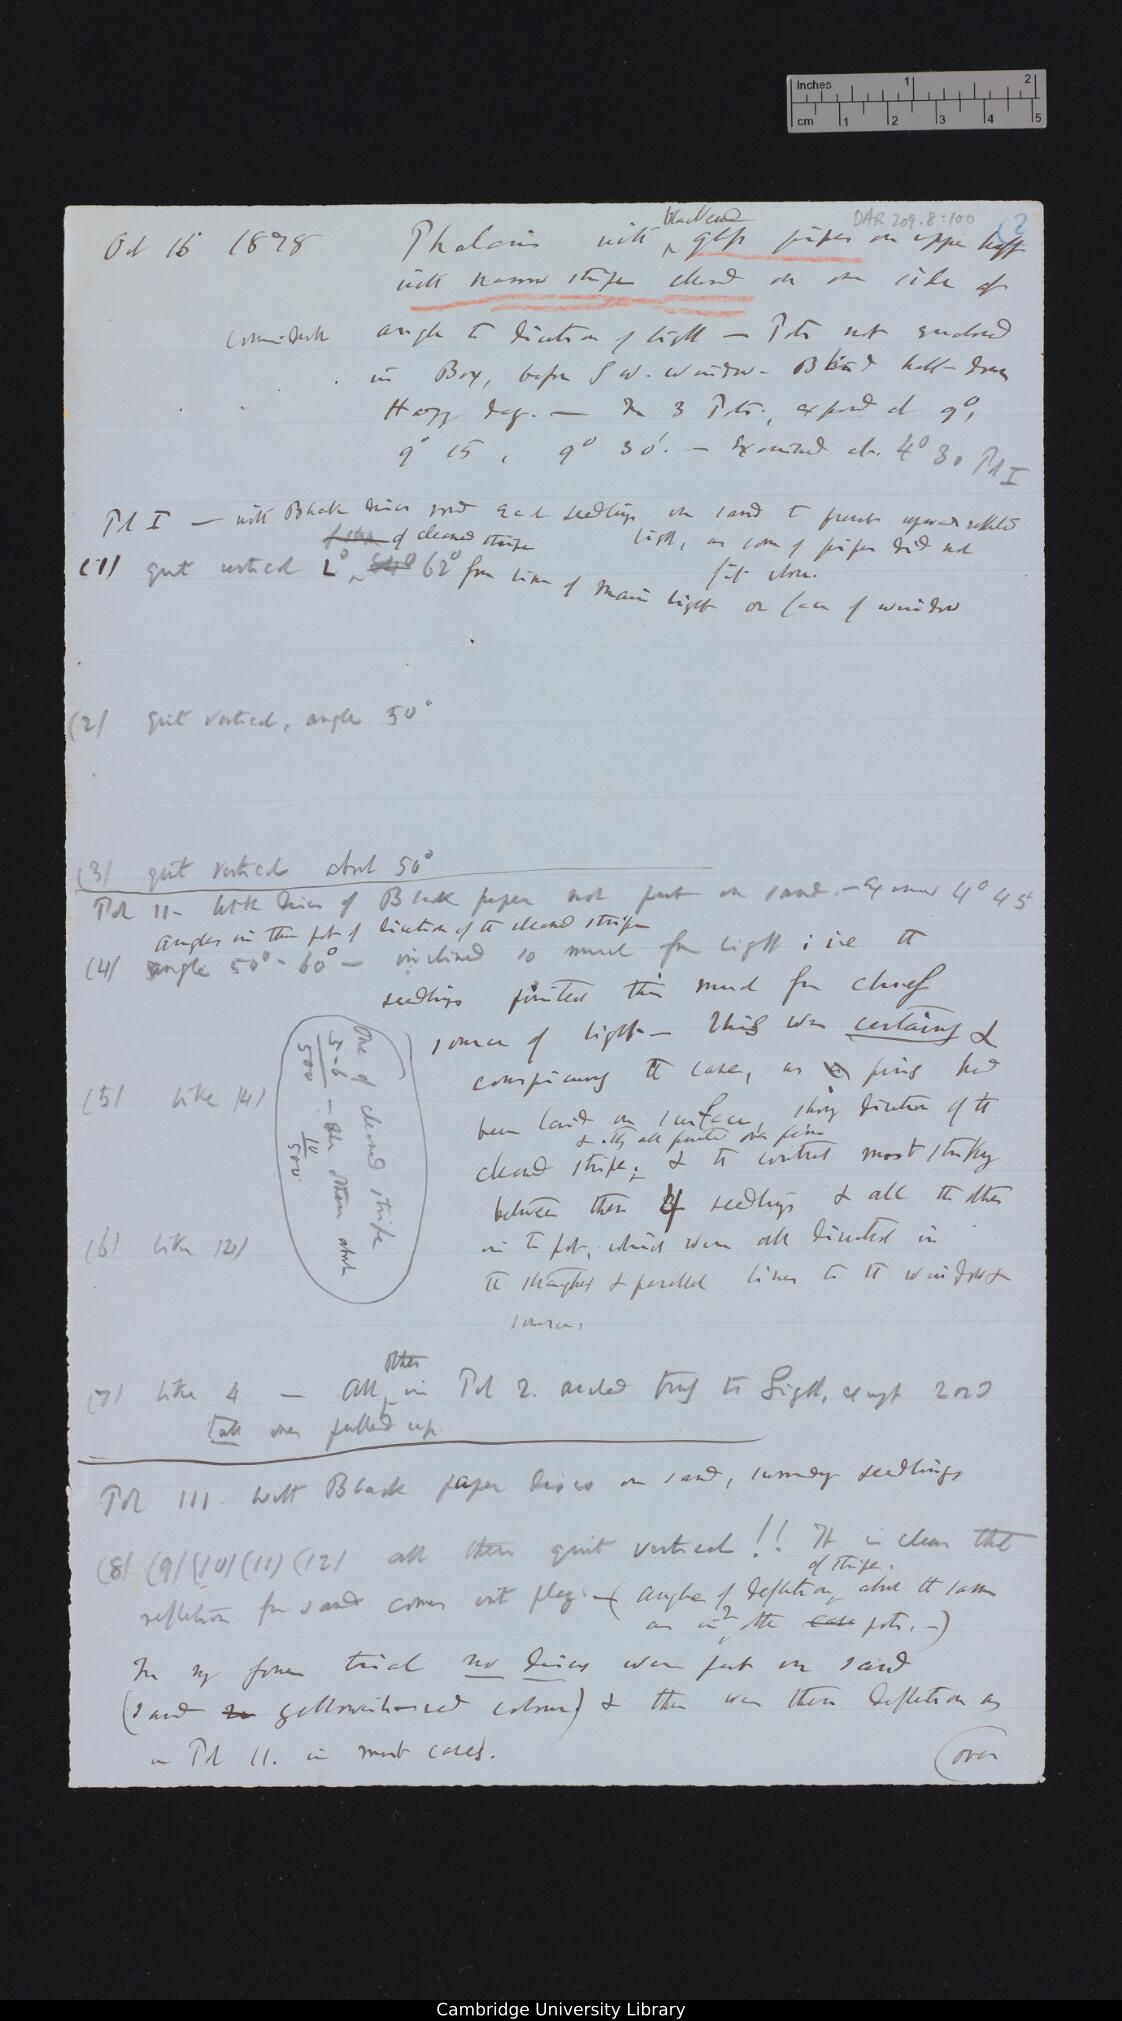 DAR 209.8:100
(2
Oct 16 1878 Phalaris with ^blackened glass pipes on upper half
with narrow stripe cleared on one side at
angle to direction of light — Pots not enclosed
in Box, before S.W. window — Blind half-down
Hazy day. — In 3 Pots, exposed at 9°,
9° 15, 9° 30'. — Examined at 4° 30 Pot I
Pot I — with Black discs round each seedlings on sand to prevent upward reflected
light, as some of pipes did not
fit close.
(1) quit vertical L° of cleared stripe 62° from line of main light or face of window
(2) quit vertical, angle 50°
(3) quit vertical about 50°
Pot II — with discs of Black paper not put on sand. — Examined 4° 45
Angles in this pot of direction of the cleared stripe
(4) angle 50°- 60° — inclined so much from light; ie the
seedlings pointed this much from chief
source of light — This was certainly &
conspicuously the case, as pins had
been laid on surface, showing direction of the
& they all pointed over pins
cleared stripe; & the contrast most striking
between these 4 seedlings & all the others
in the pot, which were all directed in
the straightest & parallel lines to the window &
source.
(5) Like (4)
(6) like (4)
One of cleared stripe
5-6/500 — the others about
10/500
(7) like 4 — All ^other in Pot 2. arched truly to Light, except 2 or 3
tall ones pulled up
Pot III with Black paper discs on sand, surrounding seedlings
(8) (9) (10) (11) (12) all these quit vertical!! It is clear that
reflection from sand comes into play — (angles of deflection ^of stripe, about the same
as in 2 other pots. —)
In my former trial no discs were put on sand
(sand yellowish-red colour) & there was then deflection as
in Pot II. in most cases.
(over
Inches 1 2
cm 1 2 3 4 5
Cambridge University Library